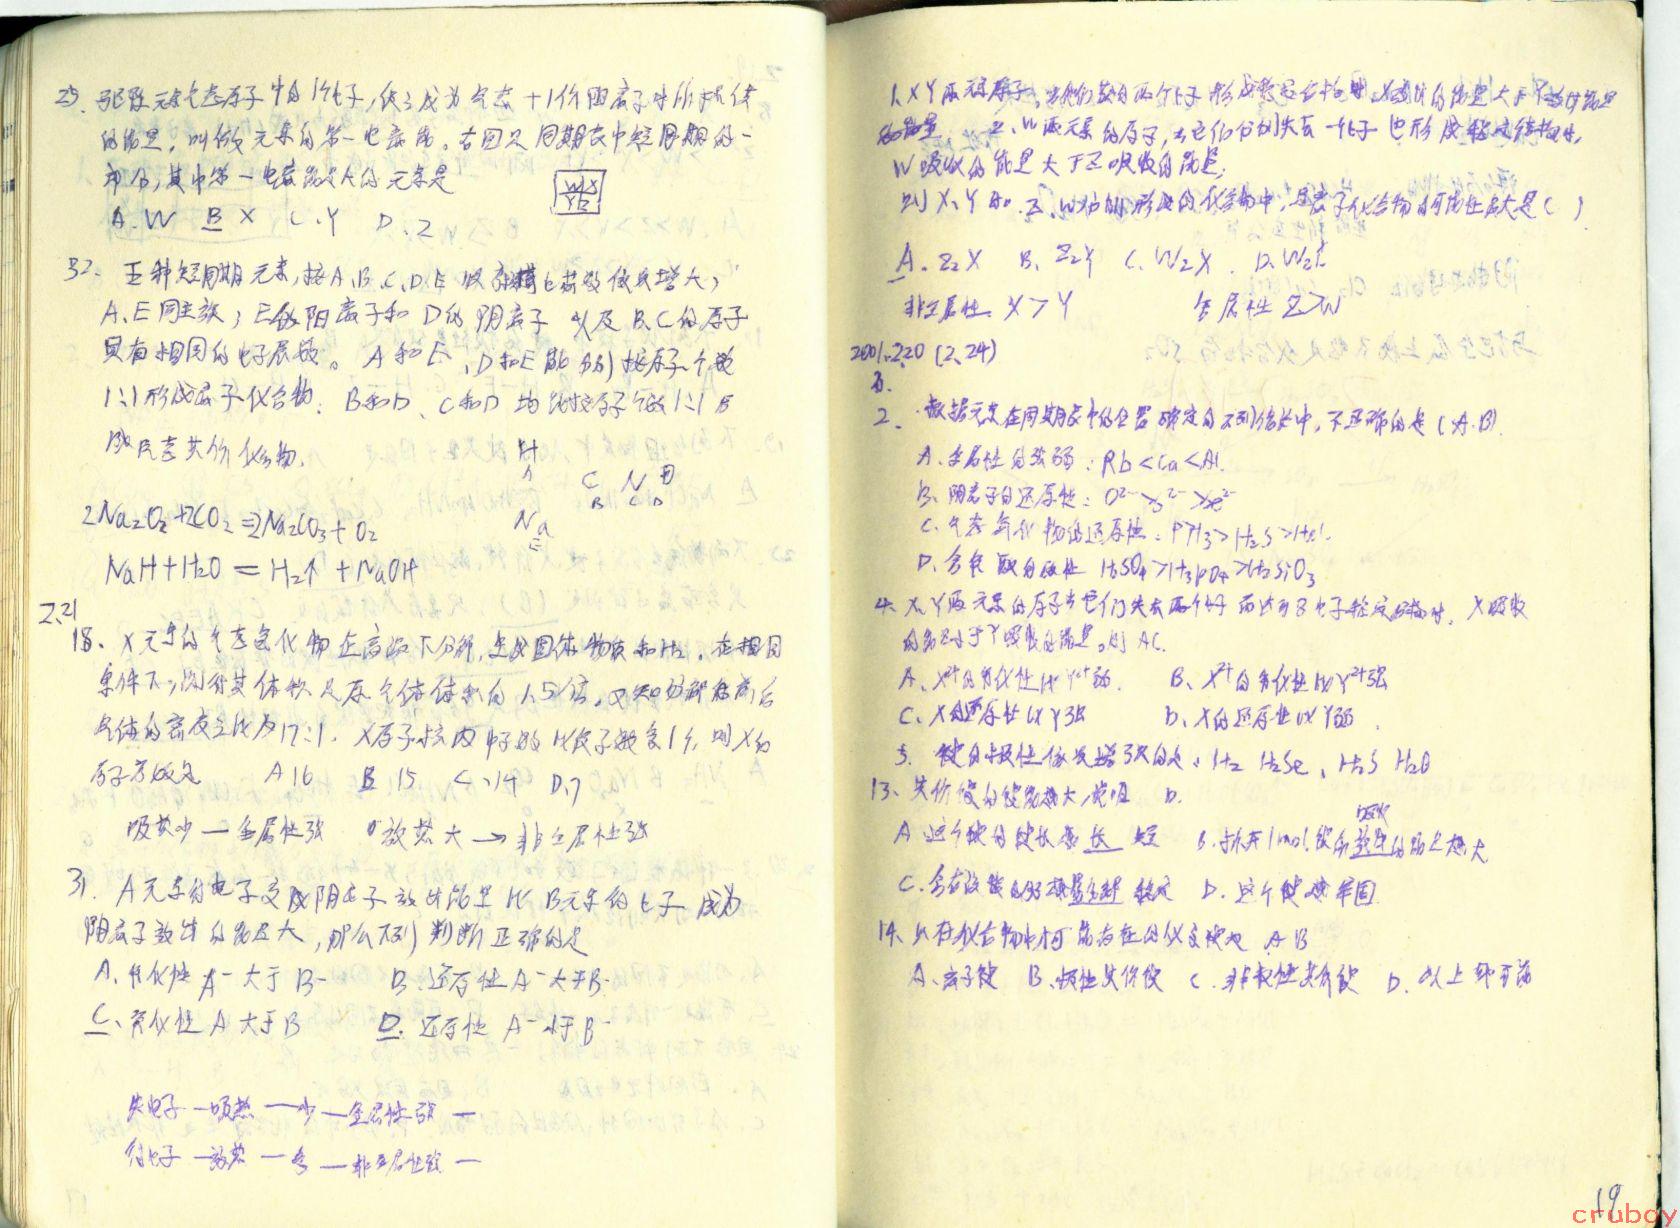 25. 元素气态原子中的1个电子,使之成为气态+1价阳离子时所提供
的能量,叫做元素的第一电离能。右图是同期表中短周期的一
部分,其中第一电离能最大的元素是
WX
YZ
A. W B X C. Y D. Z
32. 五种短周期元素,按A、B、C、D、E 顺序核电荷数依次增大,
A、E同主族;E的阳离子和D的阴离子 以及 B、C的原子
具有相同的电子层数。A和E、D和E能分别按原子个数
1:1形成离子化合物;B和D、C和D 均能按原子个数1:1
形成共价化合物.
H
A
C N O
B C D
Na
E
2Na2O2+2CO2=2Na2CO3+O2
NaH+H2O=H2↑+NaOH
2.21
18、X元素的气态氢化物在高温下分解,生成固体物质和H2,在相同
条件下,测得其体积是原气体体积的1.5倍。又知分解前后
气体的密度之比为17:1,X原子核内中子数比质子数多1个,则X的
原子序数是 A 16 B 15 C、14 D、7
吸热少—金属性强 放热大→非金属性强
31. A元素的电子变成阴离子放出能量比B元素的电子成为
阴离子放出的能量大,那么下列判断正确的是
A、氧化性 A-大于B- B、还原性A-大于B-
C、氧化性A大于B D. 还原性 A-小于B-
失电子—吸热—少—金属性强—
得电子—放热—多—非金属性强—
1、X Y两元素原子,当他们获得两个电子形成稳定结构时,X放出的能量大于Y放出能量
Z、W两元素的原子,当它们分别失去一个电子也形成稳定结构时,
W吸收的能量大于Z吸收的能量,
则X、Y和Z、W分别形成的化合物中,是离子化合物可能性最大是( )
A. Z2X B. Z2Y C. W2X. D. W2Y
非金属性 X>Y 金属性Z>W
2001.2.20 (2.24)
2. 根据元素在周期表中的位置确定的下列结论中,不正确的是(A.B)
A. 金属性的强弱:Rb<Ca<Al.
B. 阴离子的还原性:O2->S2->Se2-
C. 气态氢化物的还原性:PH3>H2S>HCl.
D、含氧酸的酸性 H2SO4>H3PO4>H2SiO3
4. X、Y两元素的原子当它们失去两个电子而达到8电子稳定结构时,X吸收
的能量小于Y吸收的能量。则 AC.
A、X2+的氧化性比Y2+弱. B、X2+的氧化性比Y2+强
C、X的还原性比Y强 D、X的还原性比Y弱.
5. 键的极性依次增强的是:H2 H2Se、H2S H2O
13、共价键的键能越大,说明 D.
A 这个键的键长越长 短 B.拆开1mol键所放出的能量越大
吸收
C.含有该键的 稳定 D. 这个键越牢固
14. 只在化合物中才可能存在的化学键是 AB
A、离子键 B、极性共价键 C. 非极性共价键 D. 以上都可能
19
cruboy